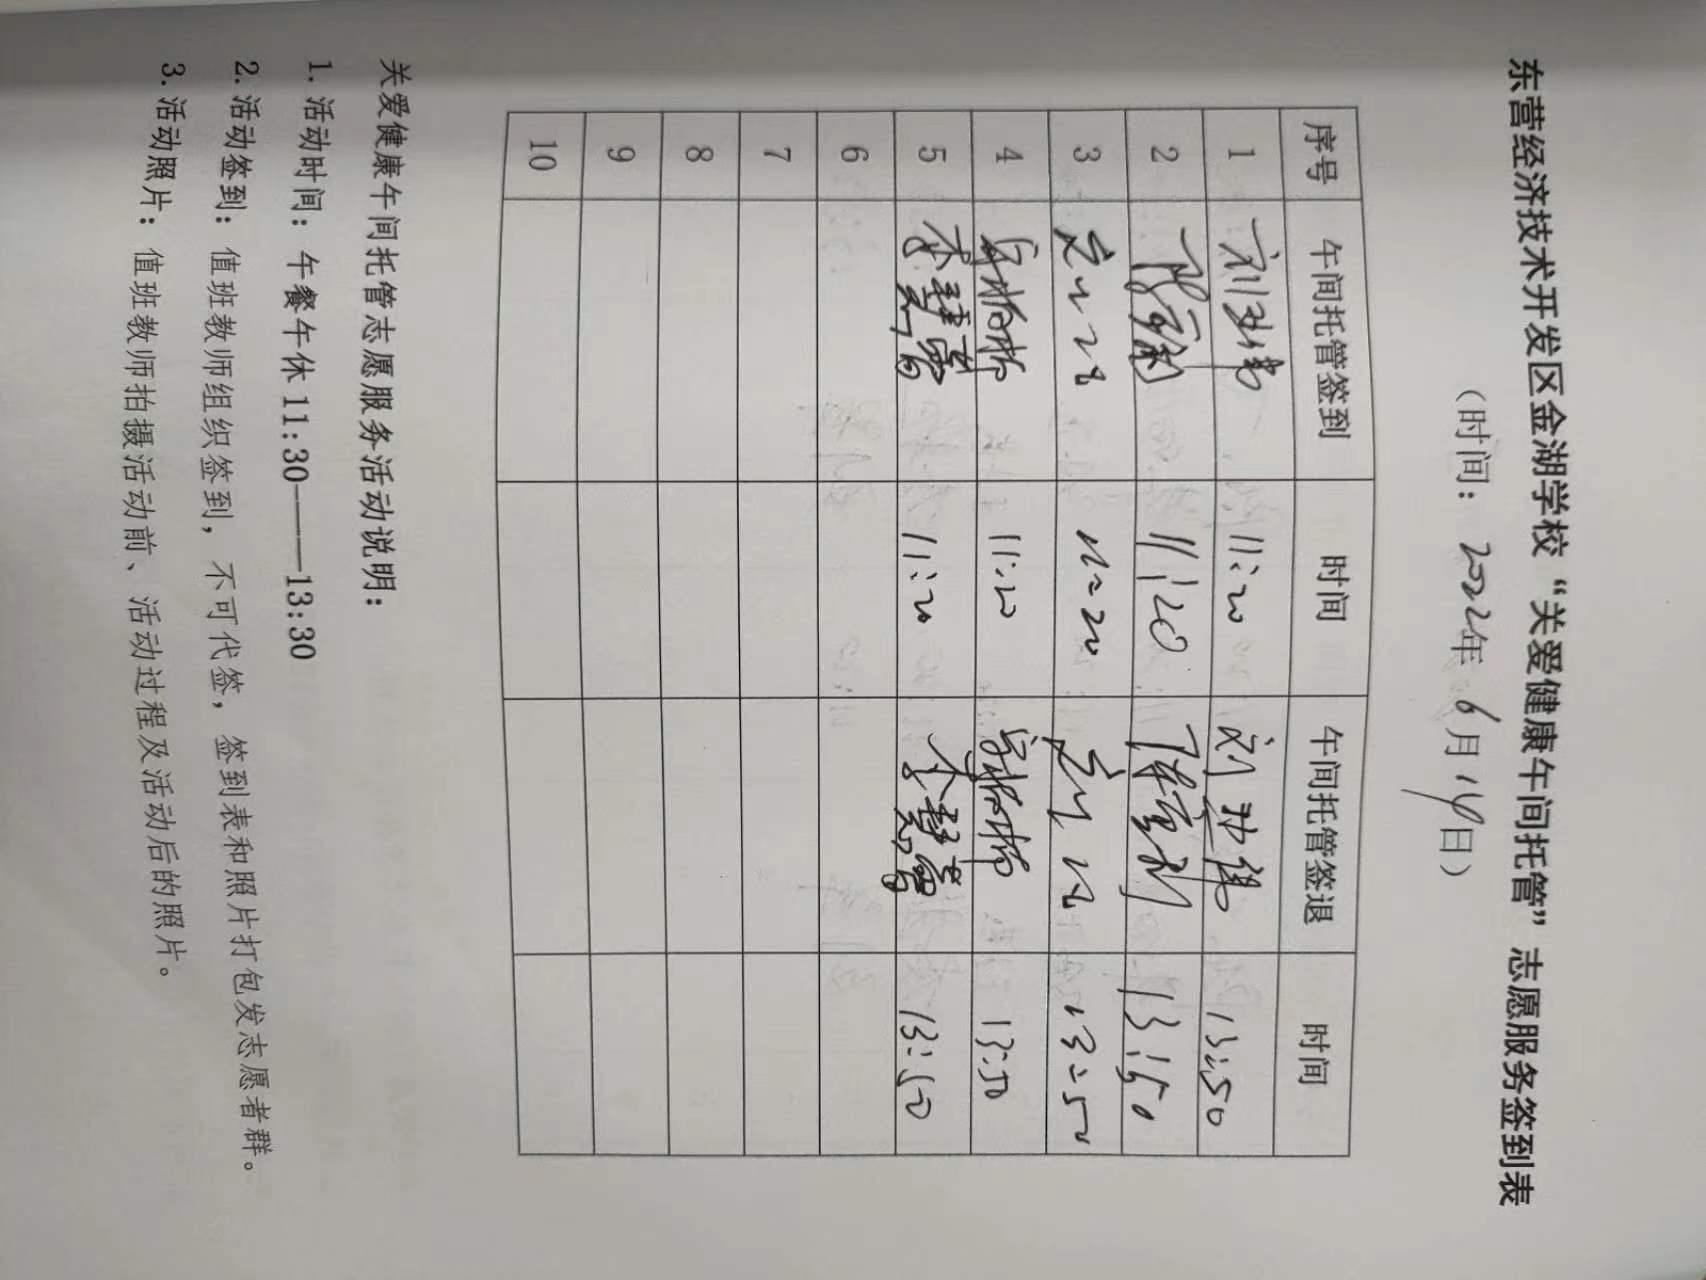 东营经济技术开发区金湖学校“关爱健康午间托管”志愿服务签到表
（时间：2022年6月14日）
序号 午间托管签到 时间 午间托管签退 时间
1 11:20 13:50
2 11:20 13:50
3 11:20 13:50
4 11:20 13:50
5 11:20 13:50
6
7
8
9
10
关爱健康午间托管志愿服务活动说明：
1. 活动时间：午餐午休 11:30——13:30
2. 活动签到：值班教师组织签到，不可代签，签到表和照片打包发志愿者群。
3. 活动照片：值班教师拍摄活动前、活动过程及活动后的照片。